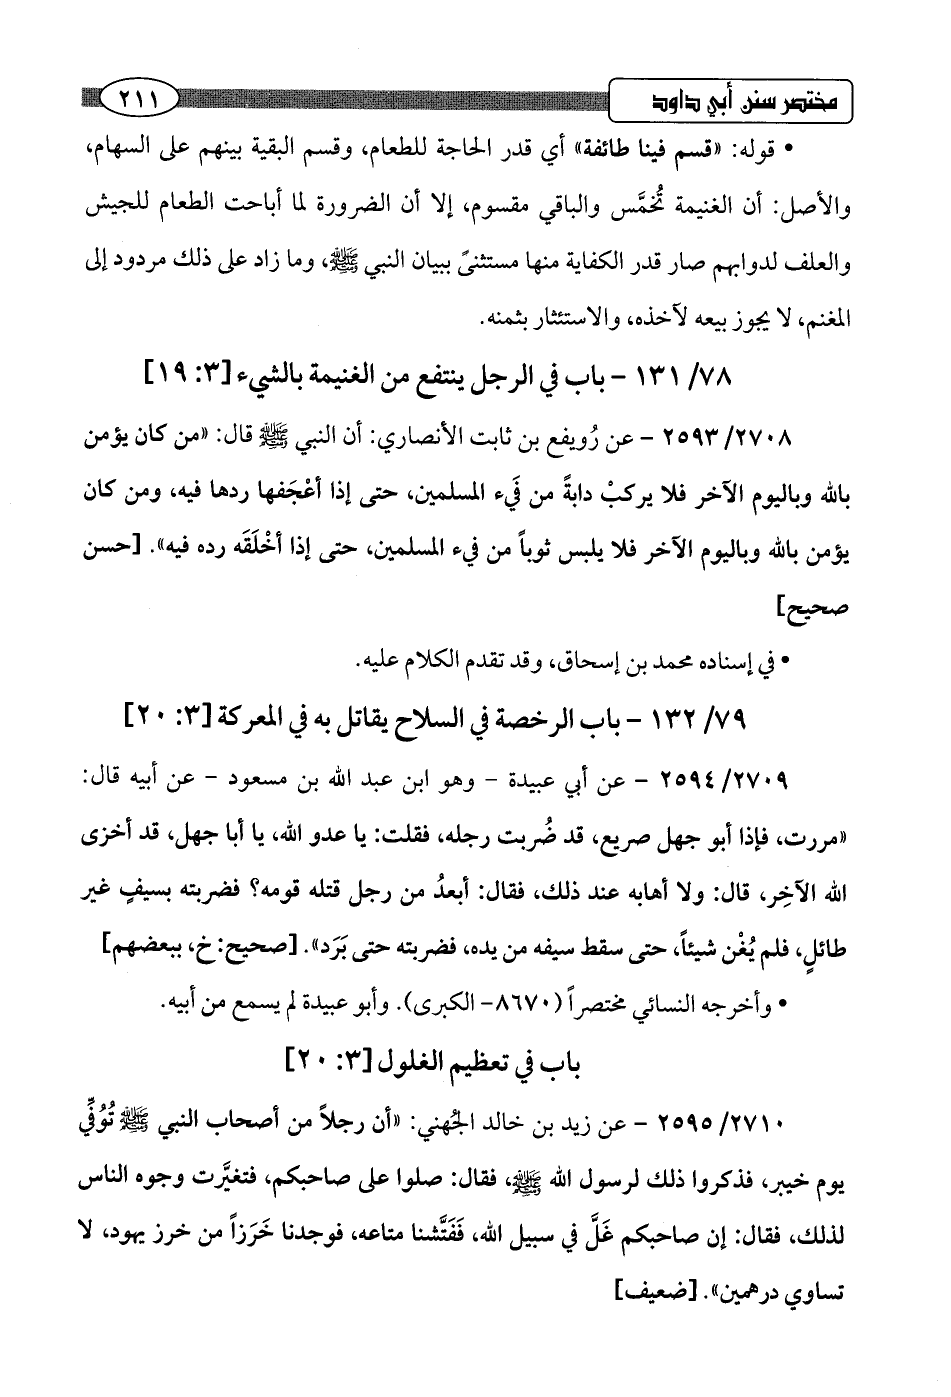 مختصر سنن أبي داود
٢١١
• قوله: «قسم فينا طائفة» أي قدر الحاجة للطعام، وقسم البقية بينهم على السهام،
والأصل: أن الغنيمة تُخمَّس والباقي مقسوم، إلا أن الضرورة لما أباحت الطعام للجيش
والعلف لدوابهم صار قدر الكفاية منها مستثنىً ببيان النبي ﷺ، وما زاد على ذلك مردود إلى
المغنم، لا يجوز بيعه لآخذه، والاستئثار بثمنه.
٧٨/ ١٣١ - باب في الرجل ينتفع من الغنيمة بالشيء [٣: ١٩]
٢٧٠٨/ ٢٥٩٣ - عن رُويفع بن ثابت الأنصاري: أن النبي ﷺ قال: «من كان يؤمن
بالله وباليوم الآخر فلا يركبْ دابةً من فَيء المسلمين، حتى إذا أعْجَفها ردها فيه، ومن كان
يؤمن بالله وباليوم الآخر فلا يلبس ثوباً من فيء المسلمين، حتى إذا أخْلَقَه رده فيه». [حسن
صحيح]
• في إسناده محمد بن إسحاق، وقد تقدم الكلام عليه.
٧٩/ ١٣٢ - باب الرخصة في السلاح يقاتل به في المعركة [٣: ٢٠]
٢٧٠٩/ ٢٥٩٤ - عن أبي عبيدة - وهو ابن عبد الله بن مسعود - عن أبيه قال:
«مررت، فإذا أبو جهل صريع، قد ضُربت رجله، فقلت: يا عدو الله، يا أبا جهل، قد أخزى
الله الآخِر، قال: ولا أهابه عند ذلك، فقال: أبعدُ من رجل قتله قومه؟ فضربته بسيفٍ غير
طائلٍ، فلم يُغْن شيئاً، حتى سقط سيفه من يده، فضربته حتى بَرَد». [صحيح: خ، ببعضهم]
• وأخرجه النسائي مختصراً (٨٦٧٠- الكبرى). وأبو عبيدة لم يسمع من أبيه.
باب في تعظيم الغلول [٣: ٢٠]
٢٧١٠/ ٢٥٩٥ - عن زيد بن خالد الجُهني: «أن رجلاً من أصحاب النبي ﷺ تُوُفِّي
يوم خيبر، فذكروا ذلك لرسول الله ﷺ، فقال: صلوا على صاحبكم، فتغيَّرت وجوه الناس
لذلك، فقال: إن صاحبكم غَلَّ في سبيل الله، فَفَتَّشنا متاعه، فوجدنا خَرَزاً من خرز يهود، لا
تساوي درهمين». [ضعيف]